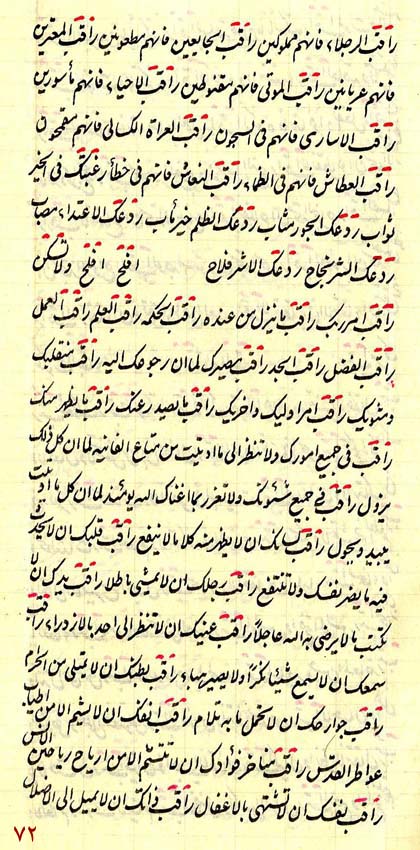 راقب الرجلاء فانهم مملوكين راقب الجايعين فانهم مطعونين راقب المعترين
فانهم عريانين راقب الموتى فانهم مقنوطين راقب الاحياء فانهم مأسورين
راقب الاسارى فانهم فى السجون راقب العراة الكسالى فانهم مقمحون
راقب العطاش فانهم فى الظماء راقب النعاس فانهم فى خطأ رغبتك فى الخير
ثواب ردعك الجور مثاب ردعك الظلم خير مآب ردعك الاعتداء مصاب
ردعك الشر نجاح ردعك الاشر فلاح افلح افلح ولا تكن
راقب امر ربك راقب ما ينزل من عنده راقب الحكمه راقب العلم راقب العمل
راقب الفضل راقب الجد راقب مصيرك لما ان رجوعك اليه راقب منقلبك
ومثويك راقب امر اوليك واخريك راقب ما يصدر عنك راقب ما يظهر منك
راقب فى جميع امورك ولا تنظر الى ما اوتيت من متاع الفانيه لما ان كل ذلك
يزول راقب فى جميع شئونك ولا تغرر بما اغناك الله يومئذ لما ان كل ما اوتيت
يبيد ويحول راقب لسانك ان لا يظهر منه كلما لا ينفع راقب قلبك ان لا يحدث
فيه ما يضر نفسك ولا تنتفع راقب رجلك ان لا تمشى باطلا راقب يدك ان لا
تكتب ما لا يرضى به الله عاجلاً راقب عينيك ان لا تنظر الى احد بالازدراء راقب
سمعك ان لا يسمع شيئا نكراً ولا يصير بهاء راقب بطنك ان لا تمتلى من الحرام
راقب جوارحك ان لا تحمل ما به تلام راقب نفسك ان لا يشيم الا من اطياب
عواطر القدس راقب مناخر فؤادك ان لا تتنسم الا من ارياح رياحين الانس
راقب نفسك ان لا تشتهى بالاغفال راقب ذاتك ان لا يميل الى الاضلال
٧٢